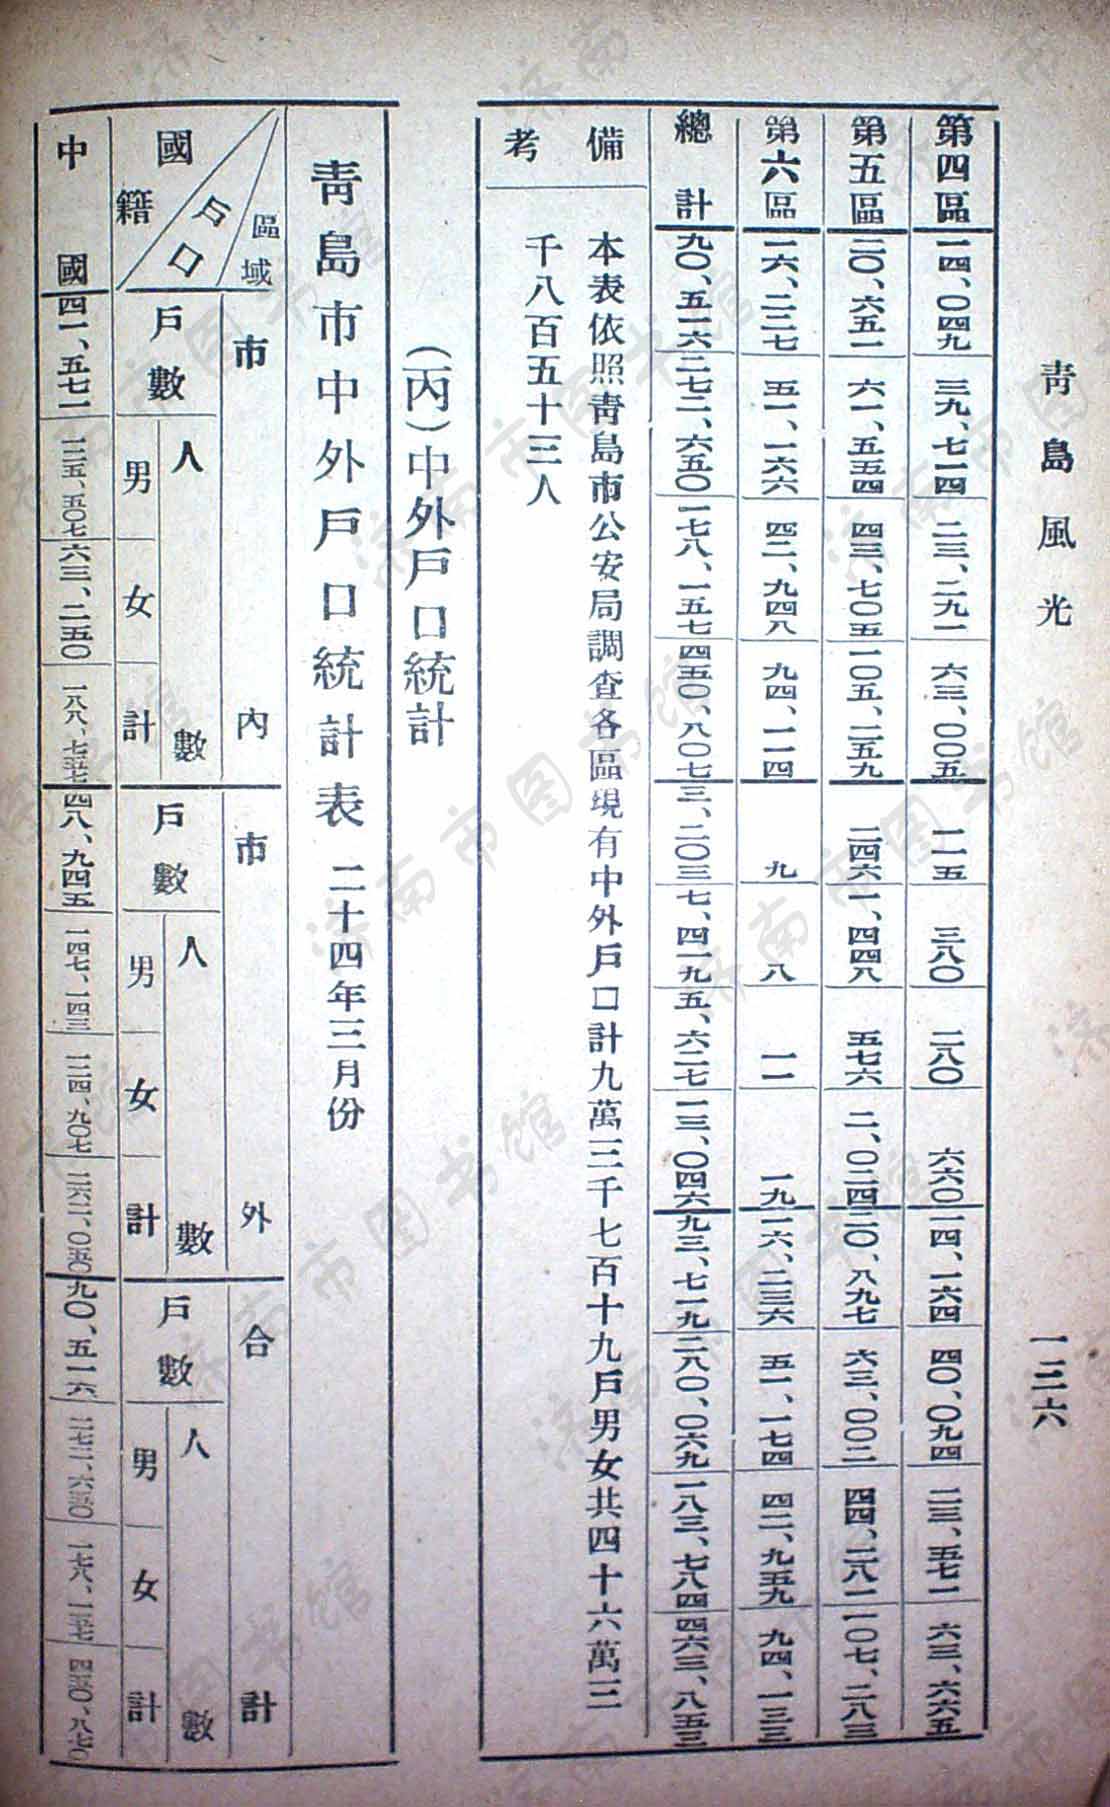 青島風光
一三六
第四區 一四、〇四九 三九、七一四 二三、二九一 六三、〇〇五 一一五 三八〇 二八〇 六六〇 一四、一六四 四〇、〇九四 二三、五七一 六三、六六五
第五區 二〇、六五一 六一、五五四 四三、七〇五 一〇五、二五九 二四六 一、四四八 五七六 二、〇二四 二〇、八九七 六三、〇〇二 四四、二八一 一〇七、二八三
第六區 一六、二二七 五一、一六六 四二、九四八 九四、一一四 九 八 一一 一九 一六、二三六 五一、一七四 四二、九五九 九四、一三三
總計 九〇、五一六 二七二、六五〇 一七八、一五七 四五〇、八〇七 三、二〇三 七、四一九 五、六二七 一三、〇四六 九三、七一九 二八〇、〇六九 一八三、七八四 四六三、八五三
備考
本表依照青島市公安局調查各區現有中外戶口計九萬三千七百十九戶男女共四十六萬三
千八百五十三人
(丙)中外戶口統計
青島市中外戶口統計表 二十四年三月份
區域 市內 市外 合計
戶口
國籍
戶數 人數 戶數 人數 戶數 人數
男 女 計 男 女 計 男 女 計
中國 四一、五七一 一二五、五〇七 六三、二五〇 一八八、七五七 四八、九四五 一四七、一四三 一一四、九〇七 二六二、〇五〇 九〇、五一六 二七二、六五〇 一七八、一五七 四五〇、八七〇
济南市图书馆